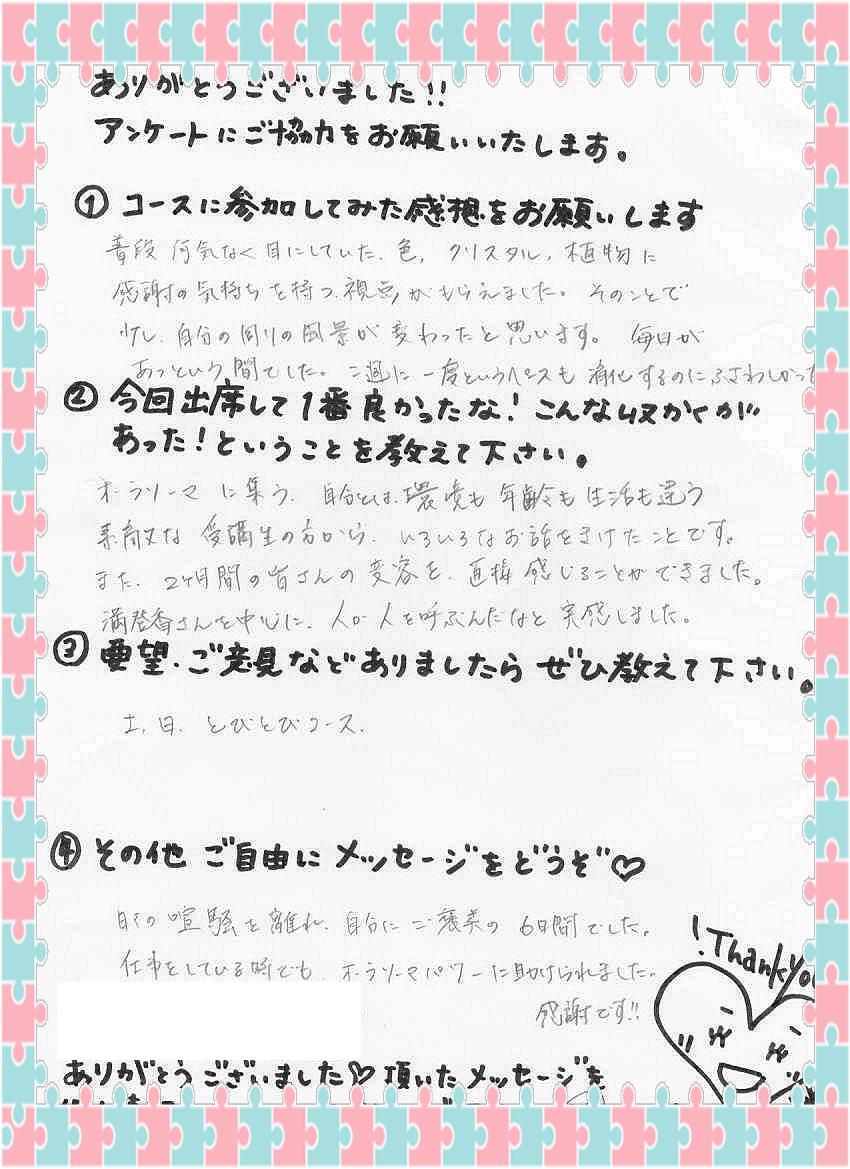 ありがとうございました!!
アンケートにご協力をお願いいたします。
① コースに参加してみた感想をお願いします
普段 何気なく目にしていた、色、クリスタル、植物に
感謝の気持ちを持つ視点がもらえました。そのことで
少し、自分の周りの風景が変わったと思います。毎日が
あっという間でした。二週に一度というペースも 消化するのにふさわしかった
② 今回出席して1番良かったな!こんな収かくが
あった!ということを教えて下さい。
オーラソーマに集う、自分とは、環境も年齢も生活も違う
素敵な受講生の方から、いろいろなお話をきけたことです。
また、2ヶ月間の皆さんの変容を、直接感じることができました。
満登香さんを中心に、人が人を呼ぶんだなと実感しました。
③ 要望、ご意見などありましたら ぜひ教えて下さい。
土、日、とびとびコース、
④ その他 ご自由にメッセージをどうぞ♡
日々の喧騒を離れ、自分にご褒美の6日間でした。
仕事をしている時でも、オーラソーマパワーに助けられました。
感謝です!!
!Thank you
ありがとうございました♡頂いたメッセージを